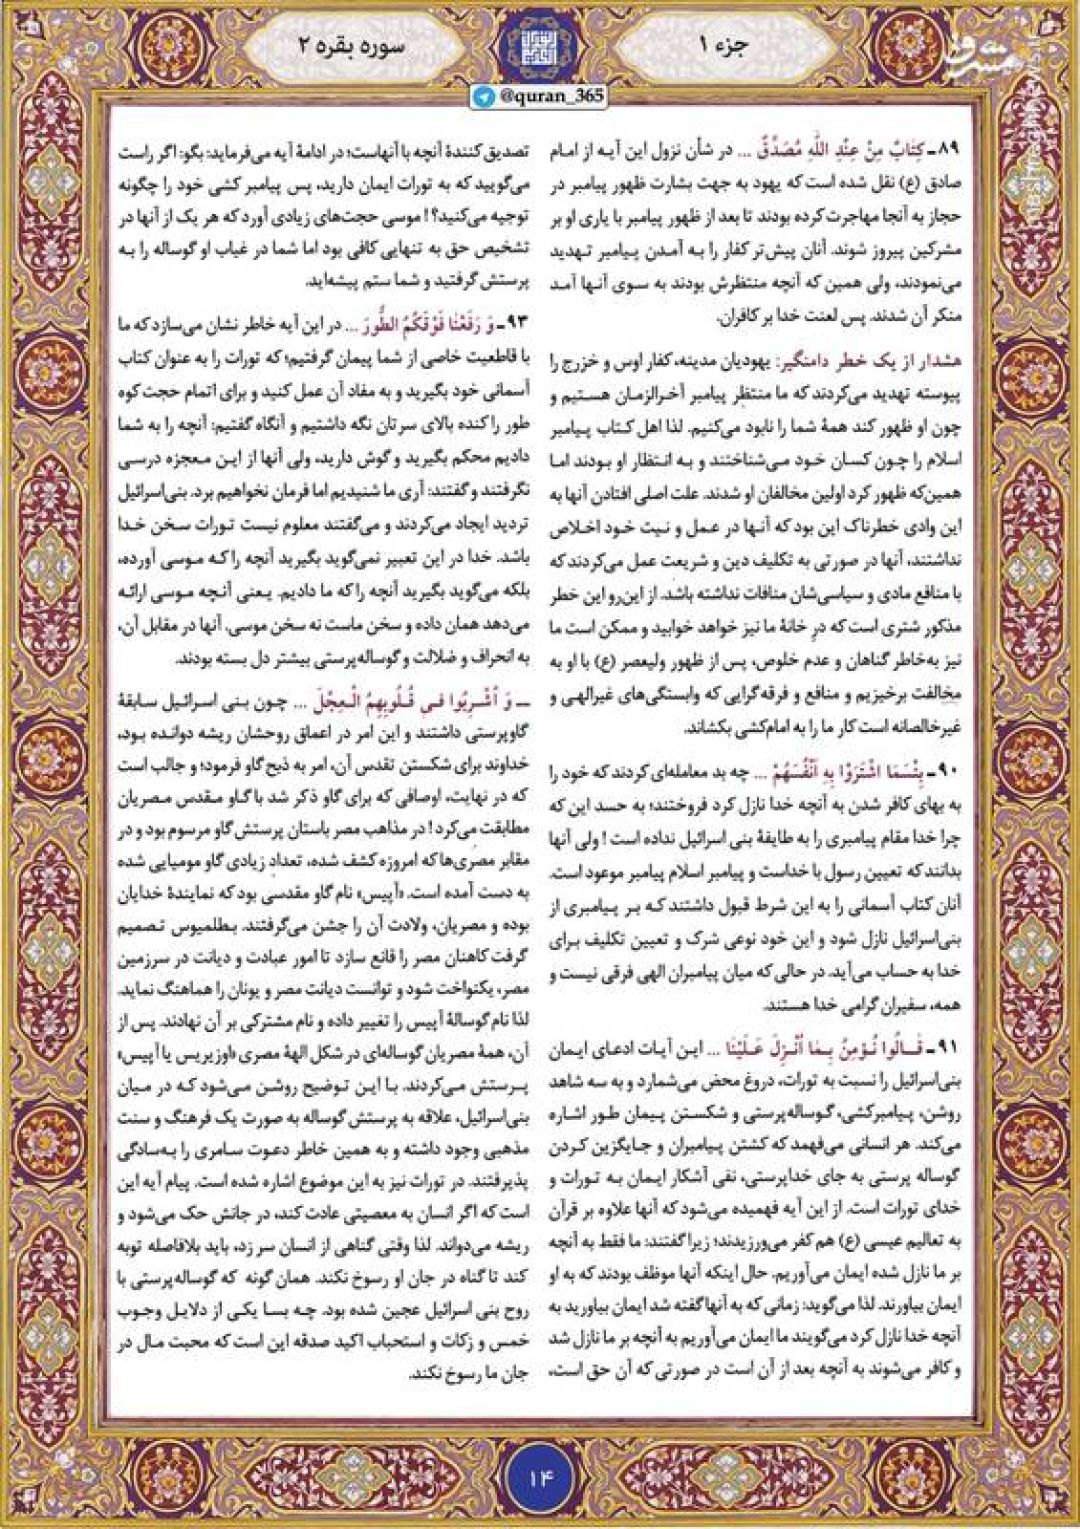 جزء ۱
سوره بقره ۲
مشرق
@quran_365
۸۹ـ کِتَابٌ مِنْ عِنْدِ اللهِ مُصَدِّقٌ ... در شأن نزول این آیه از امام
صادق (ع) نقل شده است که یهود به جهت بشارت ظهور پیامبر در
حجاز به آنجا مهاجرت کرده بودند تا بعد از ظهور پیامبر با یاری او بر
مشرکین پیروز شوند. آنان پیش‌تر کفار را به آمدن پیامبر تهدید
می‌نمودند، ولی همین که آنچه منتظرش بودند به سوی آنها آمد
منکر آن شدند. پس لعنت خدا بر کافران.
هشدار از یک خطر دامنگیر: یهودیان مدینه، کفار اوس و خزرج را
پیوسته تهدید می‌کردند که ما منتظر پیامبر آخرالزمان هستیم و
چون او ظهور کند همهٔ شما را نابود می‌کنیم. لذا اهل کتاب پیامبر
اسلام را چون کسان خود می‌شناختند و به انتظار او بودند اما
همین‌که ظهور کرد اولین مخالفان او شدند. علت اصلی افتادن آنها به
این وادی خطرناک این بود که آنها در عمل و نیت خود اخلاص
نداشتند، آنها در صورتی به تکلیف دین و شریعت عمل می‌کردند که
با منافع مادی و سیاسی‌شان منافات نداشته باشد. از این‌رو این خطر
مذکور شتری است که درِ خانهٔ ما نیز خواهد خوابید و ممکن است ما
نیز به‌خاطر گناهان و عدم خلوص، پس از ظهور ولیعصر (ع) با او به
مخالفت برخیزیم و منافع و فرقه‌گرایی که وابستگی‌های غیرالهی و
غیرخالصانه است کار ما را به امام‌کشی بکشاند.
۹۰ـ بِئْسَمَا اشْتَرَوْا بِهِ أَنْفُسَهُمْ ... چه بد معامله‌ای کردند که خود را
به بهای کافر شدن به آنچه خدا نازل کرد فروختند؛ به حسد این که
چرا خدا مقام پیامبری را به طایفهٔ بنی اسرائیل نداده است! ولی آنها
بدانند که تعیین رسول با خداست و پیامبر اسلام پیامبر موعود است.
آنان کتاب آسمانی را به این شرط قبول داشتند که بر پیامبری از
بنی‌اسرائیل نازل شود و این خود نوعی شرک و تعیین تکلیف برای
خدا به حساب می‌آید. در حالی که میان پیامبران الهی فرقی نیست و
همه، سفیران گرامی خدا هستند.
۹۱ـ قَالُوا نُؤْمِنُ بِمَا أُنْزِلَ عَلَیْنَا ... این آیات ادعای ایمان
بنی‌اسرائیل را نسبت به تورات، دروغ محض می‌شمارد و به سه شاهد
روشن، پیامبرکشی، گوساله‌پرستی و شکستن پیمان طور اشاره
می‌کند. هر انسانی می‌فهمد که کشتن پیامبران و جایگزین کردن
گوساله پرستی به جای خداپرستی، نفی آشکار ایمان به تورات و
خدای تورات است. از این آیه فهمیده می‌شود که آنها علاوه بر قرآن
به تعالیم عیسی (ع) هم کفر می‌ورزیدند؛ زیرا گفتند: ما فقط به آنچه
بر ما نازل شده ایمان می‌آوریم. حال اینکه آنها موظف بودند که به او
ایمان بیاورند. لذا می‌گوید: زمانی که به آنها گفته شد ایمان بیاورید به
آنچه خدا نازل کرد می‌گویند ما ایمان می‌آوریم به آنچه بر ما نازل شد
و کافر می‌شوند به آنچه بعد از آن است در صورتی که آن حق است،
تصدیق کنندهٔ آنچه با آنهاست؛ در ادامهٔ آیه می‌فرماید: بگو: اگر راست
می‌گویید که به تورات ایمان دارید، پس پیامبر کشی خود را چگونه
توجیه می‌کنید؟! موسی حجت‌های زیادی آورد که هر یک از آنها در
تشخیص حق به تنهایی کافی بود اما شما در غیاب او گوساله را به
پرستش گرفتید و شما ستم پیشه‌اید.
۹۳ـ وَ رَفَعْنَا فَوْقَکُمُ الطُّورَ ... در این آیه خاطر نشان می‌سازد که ما
با قاطعیت خاصی از شما پیمان گرفتیم؛ که تورات را به عنوان کتاب
آسمانی خود بگیرید و به مفاد آن عمل کنید و برای اتمام حجت کوه
طور را کنده بالای سرتان نگه داشتیم و آنگاه گفتیم: آنچه را به شما
دادیم محکم بگیرید و گوش دارید، ولی آنها از این معجزه درسی
نگرفتند و گفتند: آری ما شنیدیم اما فرمان نخواهیم برد. بنی‌اسرائیل
تردید ایجاد می‌کردند و می‌گفتند معلوم نیست تورات سخن خدا
باشد. خدا در این تعبیر نمی‌گوید بگیرید آنچه را که موسی آورده،
بلکه می‌گوید بگیرید آنچه را که ما دادیم. یعنی آنچه موسی ارائه
می‌دهد همان داده و سخن ماست نه سخن موسی. آنها در مقابل آن،
به انحراف و ضلالت و گوساله‌پرستی بیشتر دل بسته بودند.
ـ وَ أُشْرِبُوا فِی قُلُوبِهِمُ الْعِجْلَ ... چون بنی اسرائیل سابقهٔ
گاوپرستی داشتند و این امر در اعماق روحشان ریشه دوانده بود،
خداوند برای شکستن تقدس آن، امر به ذبح گاو فرمود؛ و جالب است
که در نهایت، اوصافی که برای گاو ذکر شد با گاو مقدس مصریان
مطابقت می‌کرد! در مذاهب مصر باستان پرستش گاو مرسوم بود و در
مقابر مصری‌ها که امروزه کشف شده، تعداد زیادی گاو مومیایی شده
به دست آمده است. «آپیس» نام گاو مقدسی بود که نمایندهٔ خدایان
بوده و مصریان، ولادت آن را جشن می‌گرفتند. بطلمیوس تصمیم
گرفت کاهنان مصر را قانع سازد تا امور عبادت و دیانت در سرزمین
مصر، یکنواخت شود و توانست دیانت مصر و یونان را هماهنگ نماید.
لذا نام گوسالهٔ آپیس را تغییر داده و نام مشترکی بر آن نهادند. پس از
آن، همهٔ مصریان گوساله‌ای در شکل الههٔ مصری «اوزیریس یا آپیس»
پرستش می‌کردند. با این توضیح روشن می‌شود که در میان
بنی‌اسرائیل، علاقه به پرستش گوساله به صورت یک فرهنگ و سنت
مذهبی وجود داشته و به همین خاطر دعوت سامری را به‌سادگی
پذیرفتند. در تورات نیز به این موضوع اشاره شده است. پیام آیه این
است که اگر انسان به معصیتی عادت کند، در جانش حک می‌شود و
ریشه می‌دواند. لذا وقتی گناهی از انسان سر زد، باید بلافاصله توبه
کند تا گناه در جان او رسوخ نکند. همان گونه که گوساله‌پرستی با
روح بنی اسرائیل عجین شده بود. چه بسا یکی از دلایل وجوب
خمس و زکات و استحباب اکید صدقه این است که محبت مال در
جان ما رسوخ نکند.
۱۴